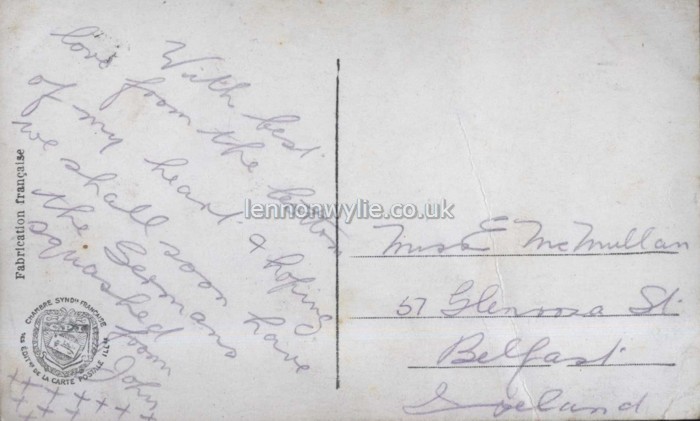 With best
love from the bottom
of my heart & hoping
we shall soon have
the Germans
squashed
from
John
+ + + + + +
+ + +
Miss E McMullan
57 Glenrosa St
Belfast
Ireland
Fabrication française
CHAMBRE SYNDle FRANÇAISE
DES ÉDITrs DE LA CARTE POSTALE ILLée
lennonwylie.co.uk